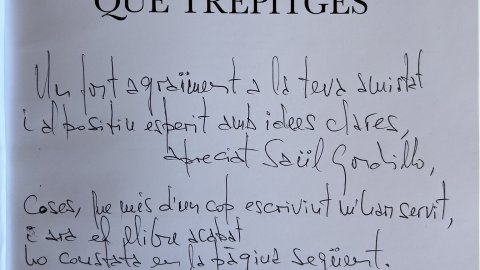 QUE TREPITGES
Un fort agraïment a la teva amistat
i al positiu esperit amb idees clares,
apreciat Saül Gordillo,
Coses, que més d'un cop escrivint m'han servit,
i ara el llibre acabat
ho constata en la pàgina següent.